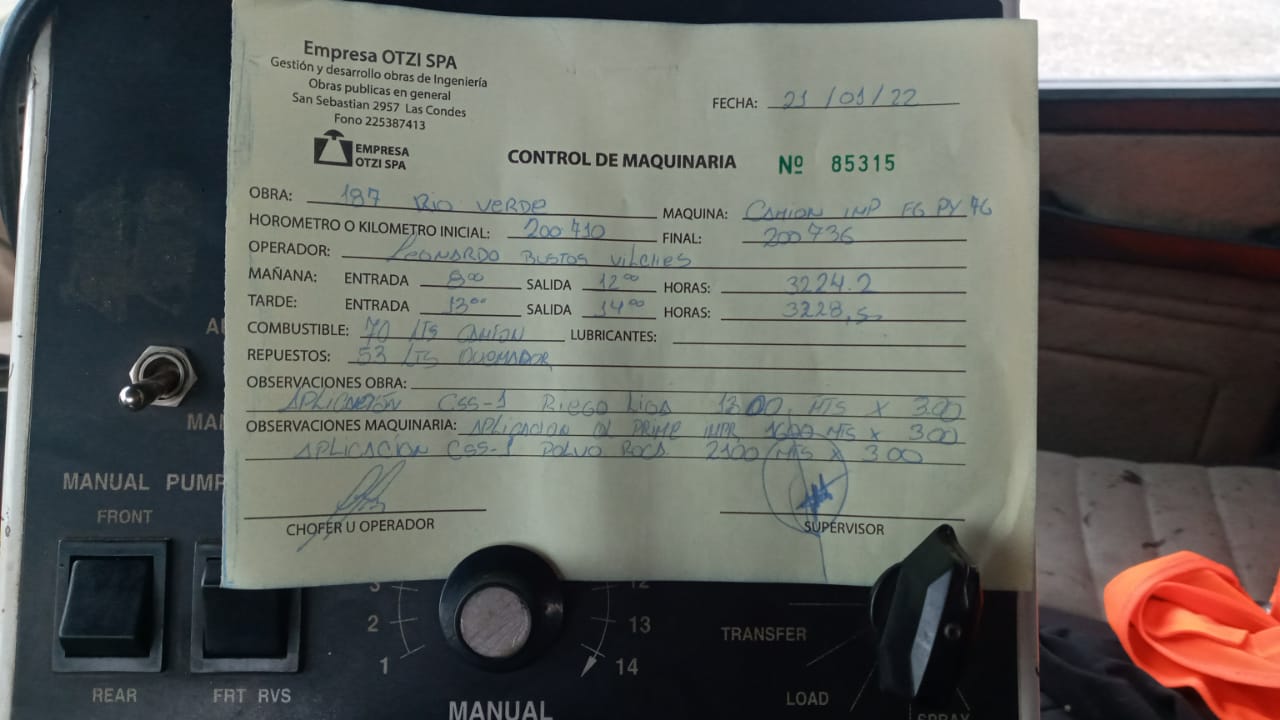 Empresa OTZI SPA
Gestión y desarrollo obras de Ingeniería
Obras publicas en general
San Sebastian 2957 Las Condes
Fono 225387413
EMPRESA
OTZI SPA
FECHA: 21/01/22
CONTROL DE MAQUINARIA Nº 85315
OBRA: 187 RIO VERDE MAQUINA: CAMION IMP FG PY 76
HOROMETRO O KILOMETRO INICIAL: 200710 FINAL: 200736
OPERADOR: LEONARDO BUSTOS VILCHES
MAÑANA: ENTRADA 8⁰⁰ SALIDA 12⁰⁰ HORAS: 3224.2
TARDE: ENTRADA 13⁰⁰ SALIDA 14⁰⁰ HORAS: 3228,5
COMBUSTIBLE: 70 LTS CAMION LUBRICANTES:
REPUESTOS: 53 LTS QUEMADOR
OBSERVACIONES OBRA:
APLICACIÓN CSS-1 RIEGO LIGA 1300 MTS X 3.00
OBSERVACIONES MAQUINARIA: APLICACION PRIME IMPR MTS X 300
APLICACÍON CSS-1 POLVO ROCA 2100 MTS X 300
CHOFER U OPERADOR SUPERVISOR
MANUAL PUMP
FRONT
REAR
FRT RVS
3
2
1
12
13
14
MANUAL
TRANSFER
LOAD
SPRAY